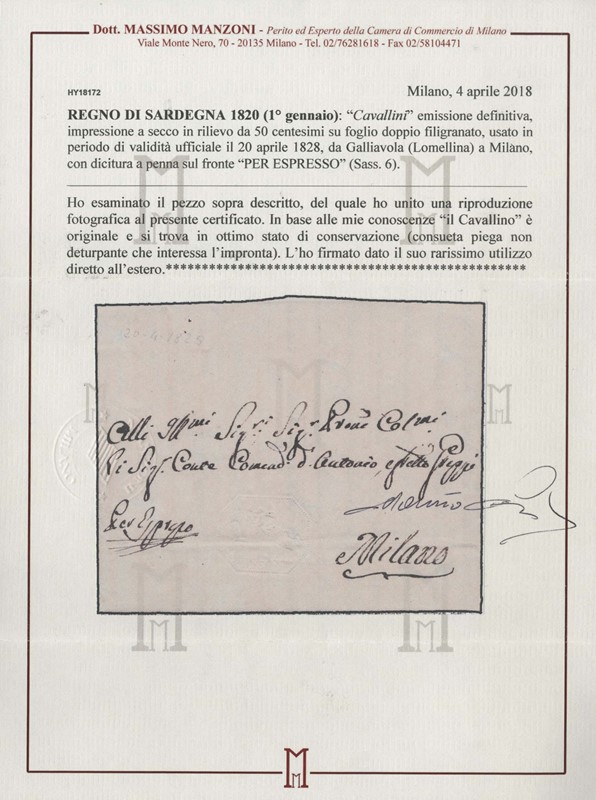 Dott. MASSIMO MANZONI - Perito ed Esperto della Camera di Commercio di Milano
Viale Monte Nero, 70 - 20135 Milano - Tel. 02/76281618 - Fax 02/58104471
HY18172
Milano, 4 aprile 2018
REGNO DI SARDEGNA 1820 (1° gennaio): “Cavallini” emissione definitiva,
impressione a secco in rilievo da 50 centesimi su foglio doppio filigranato, usato in
periodo di validità ufficiale il 20 aprile 1828, da Galliavola (Lomellina) a Milano,
con dicitura a penna sul fronte “PER ESPRESSO” (Sass. 6).
Ho esaminato il pezzo sopra descritto, del quale ho unito una riproduzione
fotografica al presente certificato. In base alle mie conoscenze “il Cavallino” è
originale e si trova in ottimo stato di conservazione (consueta piega non
deturpante che interessa l’impronta). L’ho firmato dato il suo rarissimo utilizzo
diretto all’estero.**************************************************
20-4-1828
Sig.ri Sig.r
Conte d. Antonio, e
Per Espresso
Milano
M